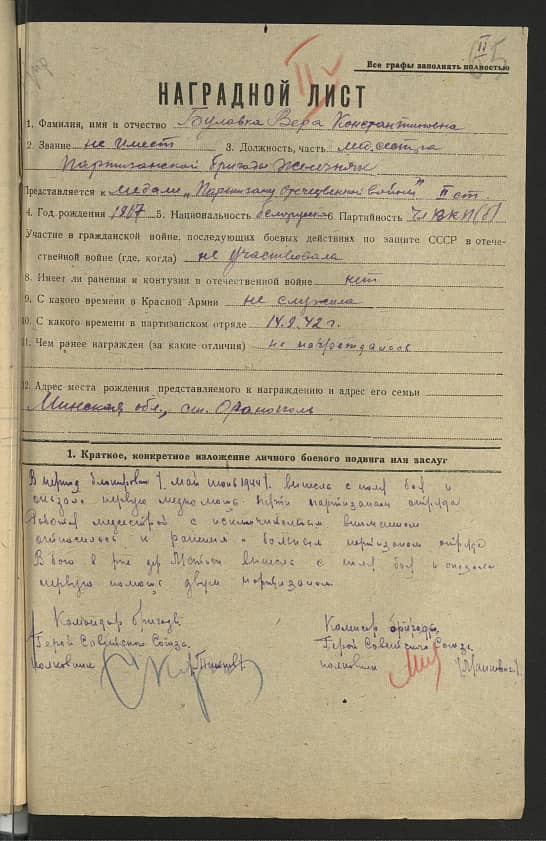 II
Все графы заполнять полностью
НАГРАДНОЙ ЛИСТ
1. Фамилия, имя и отчество Булавка Вера Константиновна
2. Звание не имеет 3. Должность, часть медсестра
партизанской бригады Железняк
Представляется к медали „Партизану отечественной войны" II ст.
4. Год рождения 1917 5. Национальность белоруска 6. Партийность Чл ВКП(б)
Участие в гражданской войне, последующих боевых действиях по защите СССР в отече-
ственной войне (где, когда) не участвовала
8. Имеет ли ранения и контузии в отечественной войне нет
9. С какого времени в Красной Армии не служила
10. С какого времени в партизанском отряде 14.9.42 г.
11. Чем ранее награжден (за какие отличия) не награждалась
12. Адрес места рождения представляемого к награждению и адрес его семьи
Минская обл.,
1. Краткое, конкретное изложение личного боевого подвига или заслуг
В период блокировки май июнь 1944 г. вынесла с поля боя и
оказала первую медпомощь партизанам отряда
Работая медсестрой с исключительным вниманием
относилась к раненым и больным партизанам отряда
В бою в р-не дер. вынесла с поля боя и оказала
первую помощь двум партизанам
Командир бригады
Герой Советского Союза
полковник
Комиссар бригады
Герой Советского Союза
полковник